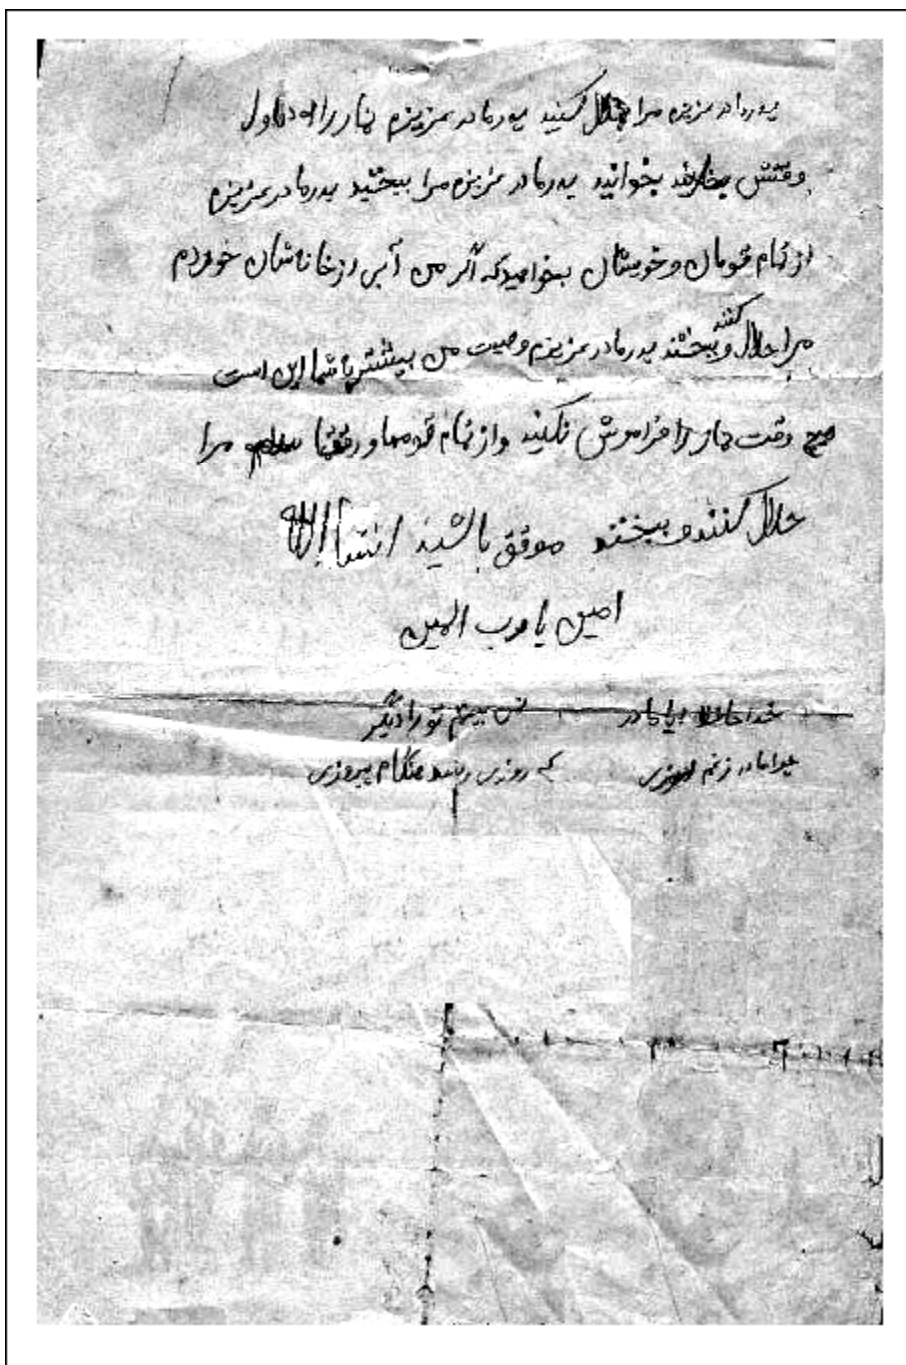 پدرمادر عزیزم مرا حلال کنید پدرمادر عزیزم نماز را اول
وقتش بخوانید پدرمادر عزیزم مرا ببخشید پدرمادر عزیزم
از تمام قومان و خویشان بخواهید که اگر من آبی از خانه‌شان خوردم
مرا حلال کنند و ببخشند پدرمادر عزیزم وصیت من بیشتر با شما این است
هیچ وقت نماز را فراموش نکنید و از تمام قومها و رفقها مرا
حلال کنند و ببخشند موفق باشید انشاالله
امین یا رب المین
خداحافظ ایا مادر نمی بینم تو را دیگر
بیا مادر که روزی رسد هنگام پیروزی